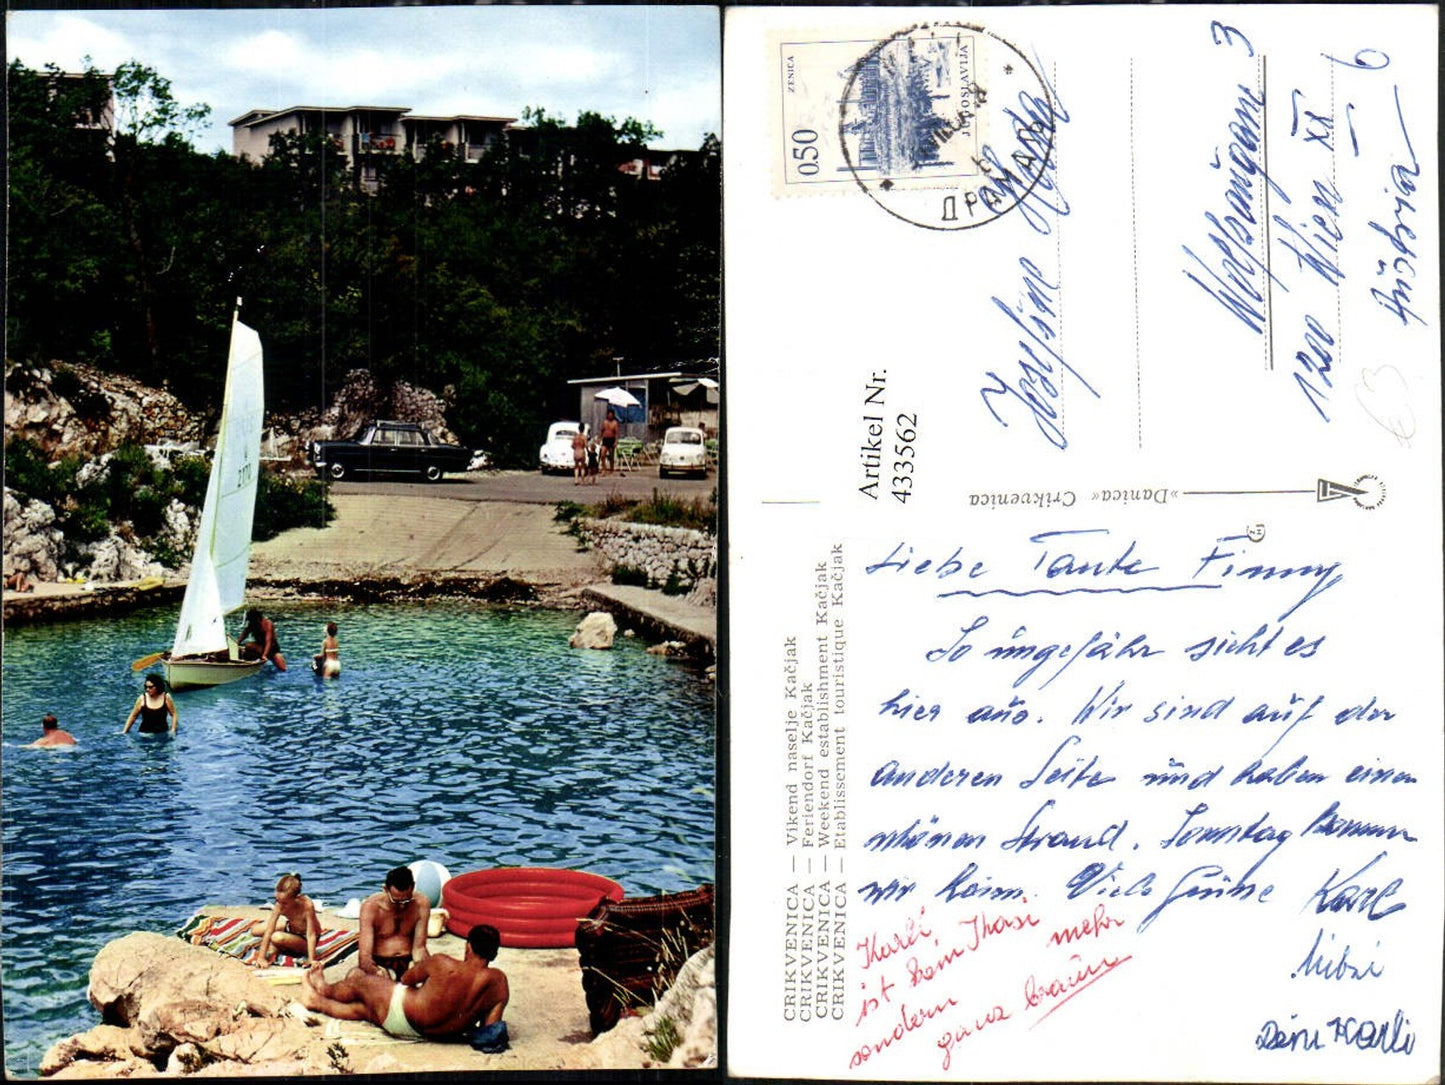 2170
ZENICA
0.50
JUGOSLAVIJA
ДРАМАЉ
Josefine
Wolfsaugasse 3
1200 Wien XX
Austria
6
Artikel Nr.
433562
»Danica« Crikvenica
CRIKVENICA — Vikend naselje Kačjak
CRIKVENICA — Feriendorf Kačjak
CRIKVENICA — Weekend establishment Kačjak
CRIKVENICA — Etablissement touristique Kačjak
Liebe Tante Finny
So ungefähr sieht es
hier aus. Wir sind auf der
anderen Seite und haben einen
schönen Strand. Sonntag kommen
wir heim. Viele Grüße Karl
Mitzi
Dein Karli
Karli
ist kein Khasi mehr
sondern
ganz braun